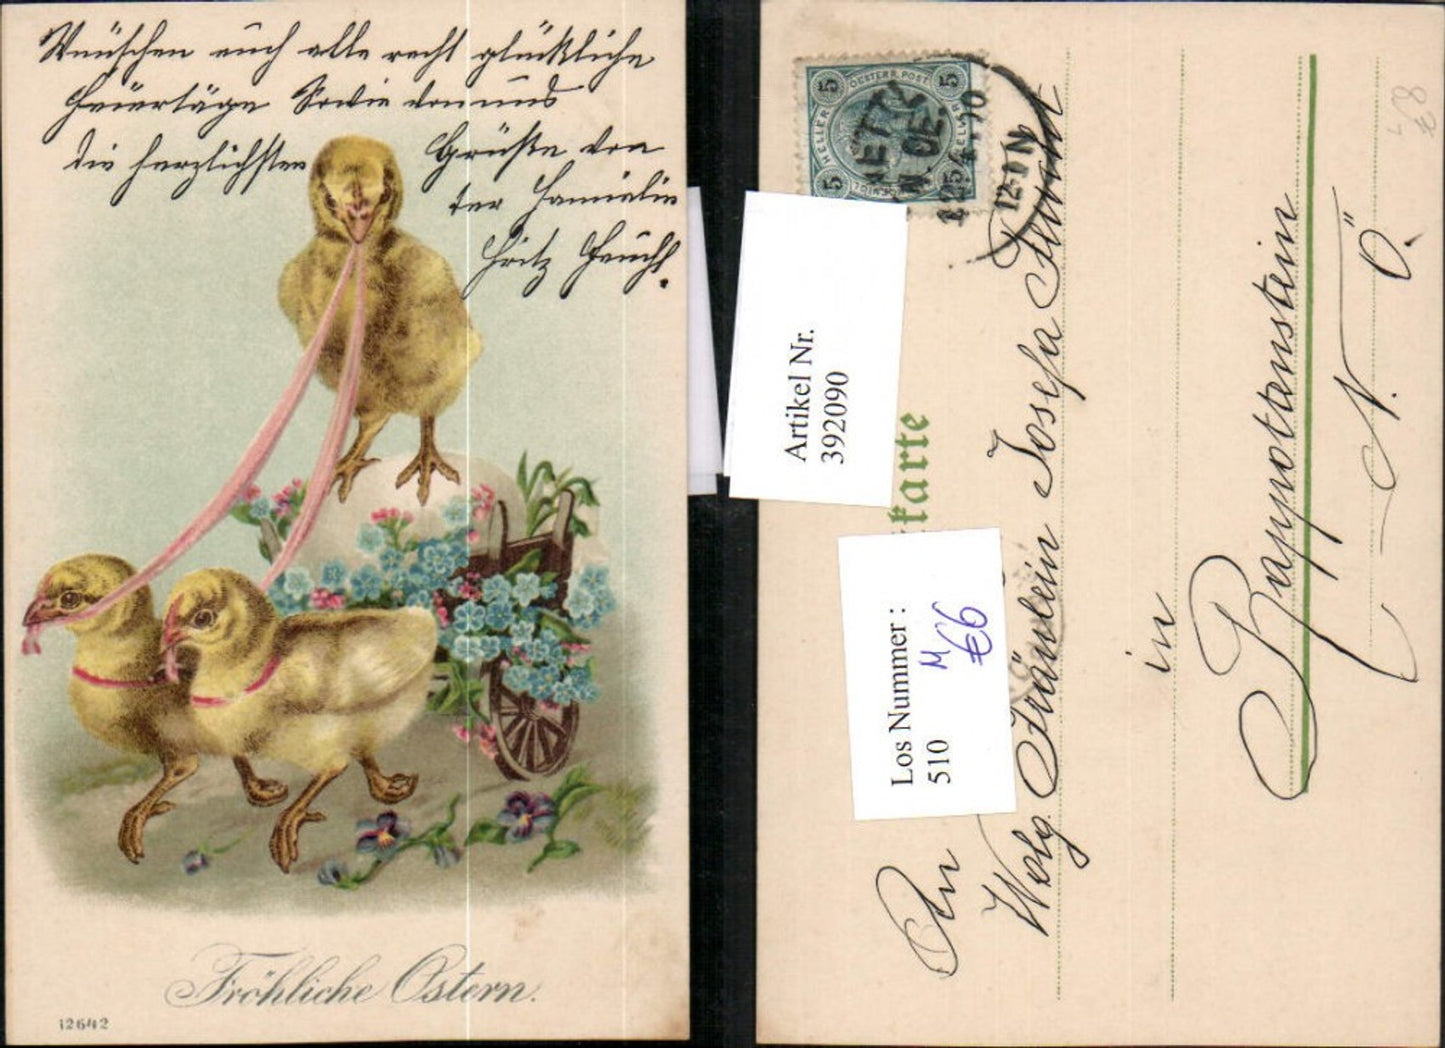 Wünschen euch alle recht glückliche
Feiertäge Sowie von uns
die herzlichsten Grüße von
der Familie
Fritz Feucht.
Fröhliche Ostern.
12642
5 OESTERR. POST 5
HELLER HELLER
5 5
12 5
12-1N
Artikel Nr.
392090
karte
Los Nummer :
510
M
€6
€8
An
Wolg. Fräulein Josefa
in
Rappottenstein
N. Ö.